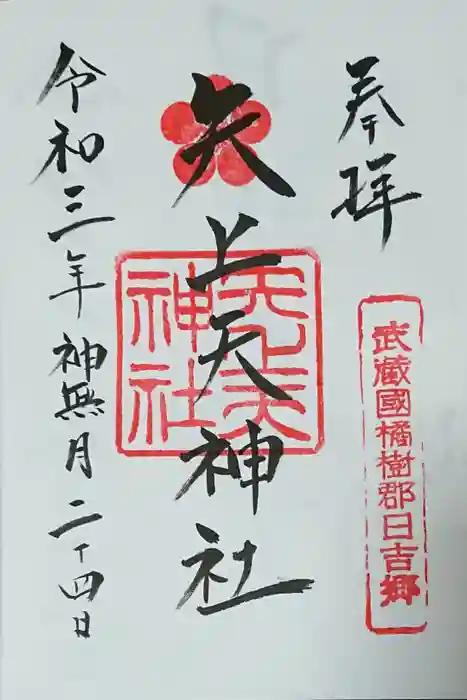 奉拝
武蔵國橘樹郡日吉郷
矢上天神社
矢上天
神社
令和三年神無月二十四日